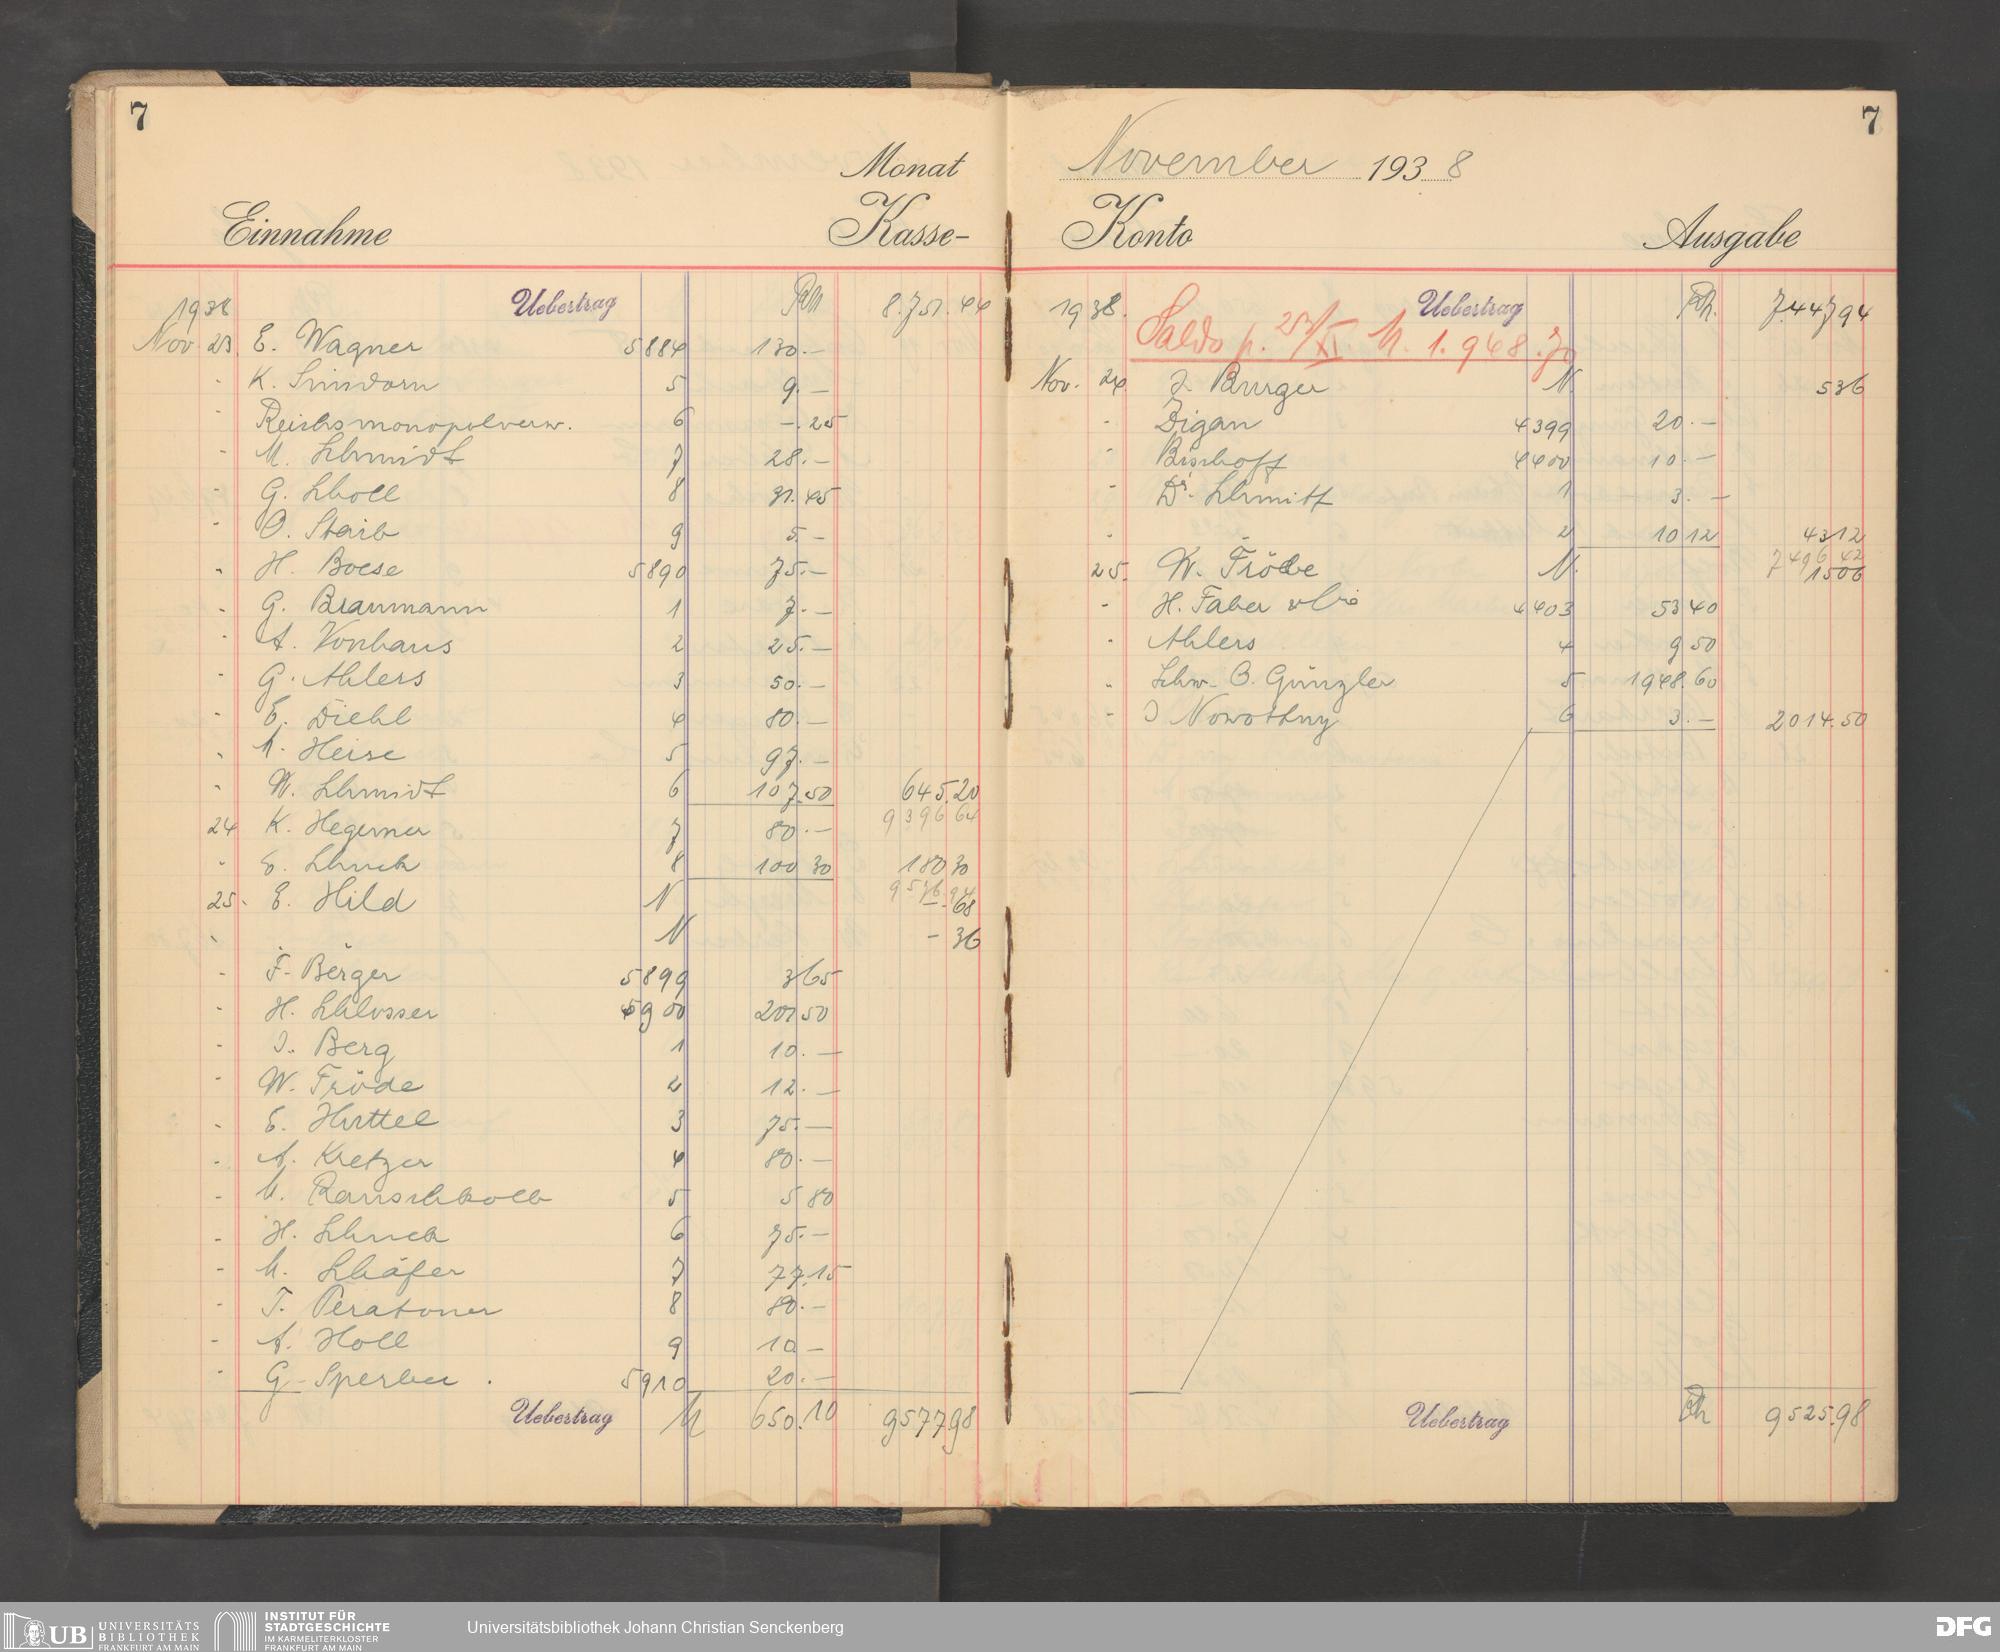 7
Monat
Einnahme Kasse-
1938 Uebertrag RM 8.751.44
Nov 23 E. Wagner 5884 130.—
- K. 5 9.—
- Reichsmonopolverw. 6 —.25
- M. Schmidt 7 28.—
- G. Scholl 8 31.45
- O. Staib 9 5.—
- H. Boese 5890 75.—
- G. Braumann 1 7.—
- A. Vonhaus 2 25.—
- G. Ahlers 3 50.—
- E. Diehl 4 80.—
- A. Heise 5 97.—
- W. Schmidt 6 107.50 645.20
9396 64
24 K. Hegemer 7 80.—
- E. Schuck 8 100 30 180 30
9576.94
25. E. Hild N —.68
- N — 36
- F. Berger 5899 3 65
- H. Schlosser 5900 201 50
- J. Berg 1 10.—
- W. Fröde 2 12.—
- E. Huttel 3 75.—
- A. Kretzer 4 80.—
- M. Rauschkolb 5 5 80
- H. Schuck 6 75.—
- M. Schäfer 7 77.15
- T. Peratoner 8 80.—
- A. Holl 9 10 —
- G. Sperber 5910 20.—
Uebertrag M 650.10 957798
7
November 1938
Konto Ausgabe
1938. Uebertrag RM. 7.447 94
Saldo p. 25/XI. M. 1.948.70
Nov. 24 J. Burger N. 5 36
- Zigan 4399 20.—
- Bischoff 4400 10.—
- Dr. Schmitt 1 3.—
- - 2 10 12 43 12
7496 42
25. W. Fröbe N. 15 06
- H. Faber 4403 53 40
- Ahlers 4 9 50
- Schw. O. Günzler 5 1948.60
- J Nowottny 6 3.— 2014.50
Uebertrag RM 9525.98
UB UNIVERSITÄTS
BIBLIOTHEK
FRANKFURT AM MAIN
INSTITUT FÜR
STADTGESCHICHTE
IM KARMELITERKLOSTER
FRANKFURT AM MAIN
Universitätsbibliothek Johann Christian Senckenberg
DFG